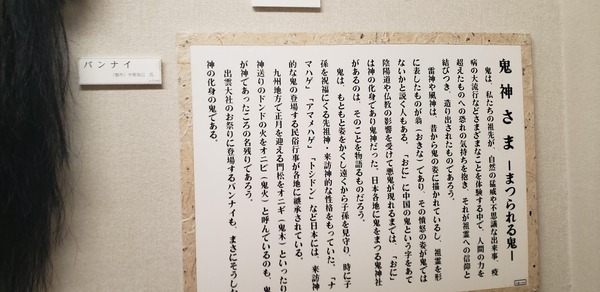 バンナイ
鬼神さま ーまつられる鬼ー
鬼は、私たちの祖先が、自然の猛威や不思議な出来事、疫
病の大流行などさまざまなことを体験する中で、人間の力を
超えたものへの恐れの気持ちを抱き、それが祖霊への信仰と
結びつき、造り出されたものであろう。
雷神や風神は、昔から鬼の姿に描かれているし、祖霊を形
に表したものが翁（おきな）であり、その憤怒の姿が鬼では
ないかと説く人もある。「おに」に中国の鬼という字をあて
陰陽道や仏教の影響を受けて悪鬼が現れるまでは、「おに」
は神の化身であり鬼神だった。日本各地に鬼をまつる鬼神社
があるのは、そのことを物語るものだろう。
鬼は、もともと姿をかくし遠くから子孫を見守り、時に子
孫を祝福にくる先祖神・来訪神的な性格をもっていた。「ナ
マハゲ」「アマメハゲ」「トシドン」など日本には、来訪神
的な鬼の登場する民俗行事が各地に継承されている。
九州地方で正月を迎える門松をオニギ（鬼木）といったり
神送りのドンドの火をオニビ（鬼火）と呼んでいるのも、鬼
が神であったころの名残りであろう。
出雲大社のお祭りに登場するバンナイも、まさにそうした
神の化身の鬼である。